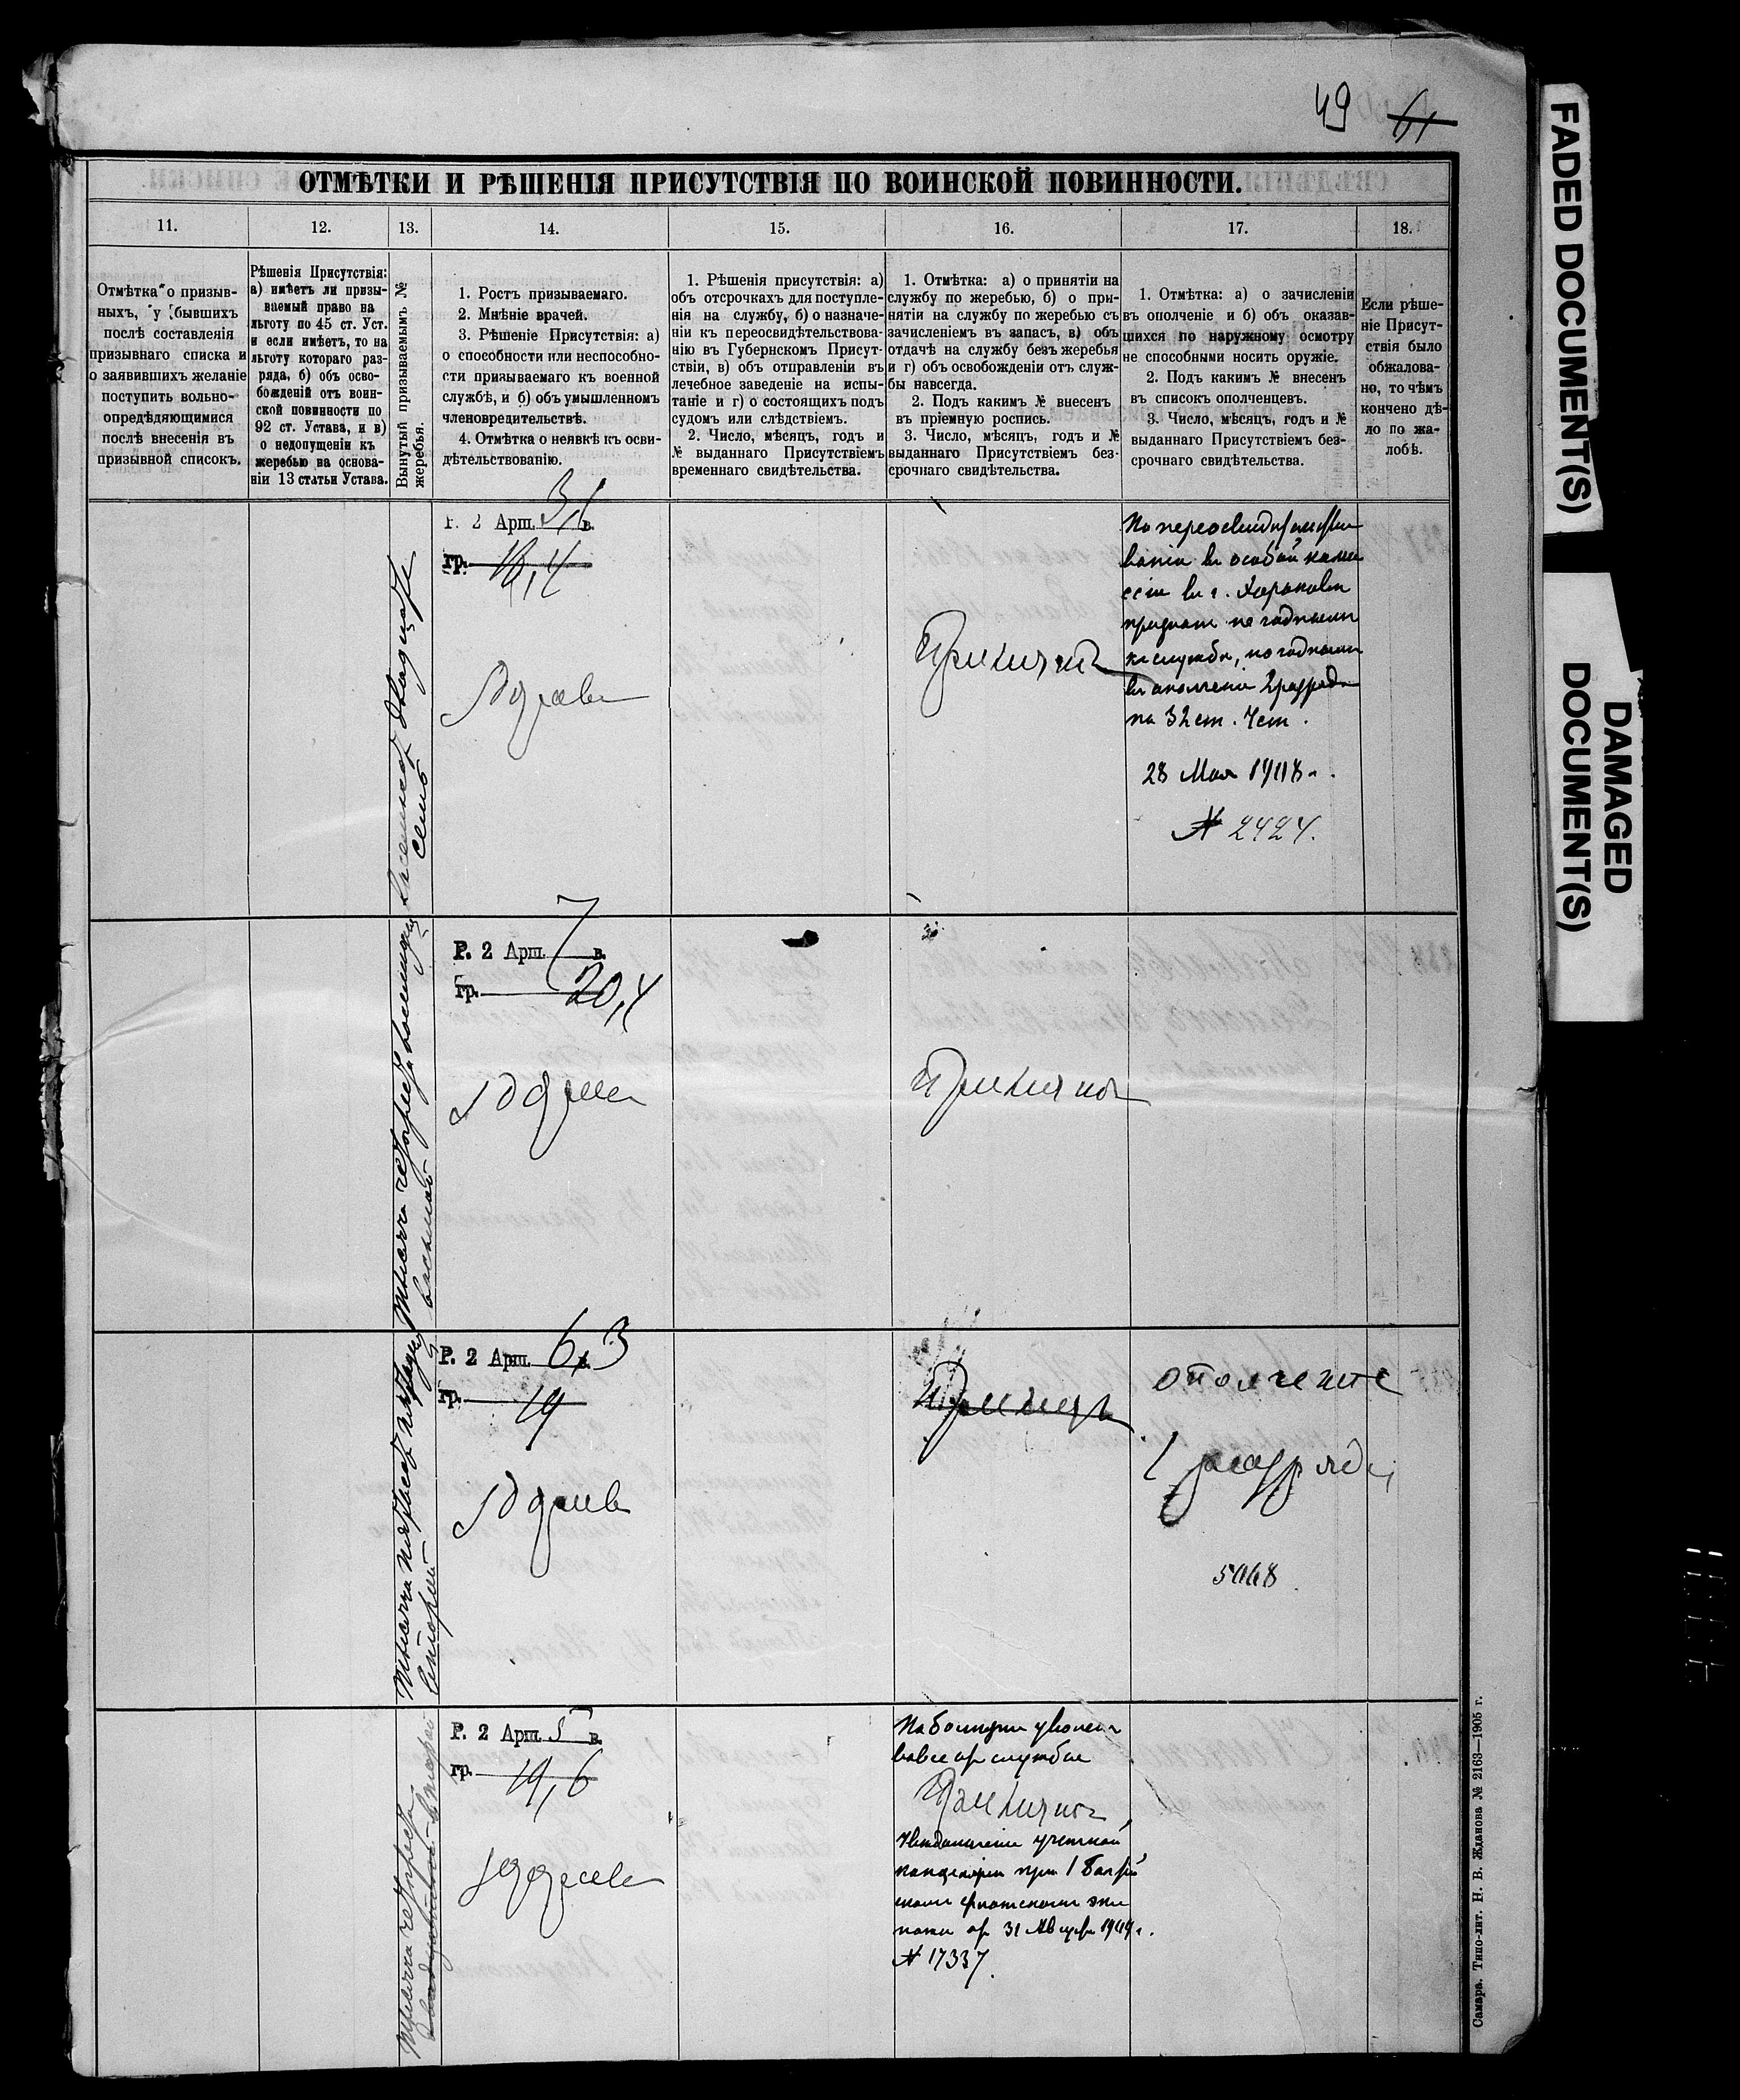 49 61
ОТМѢТКИ И РѢШЕНІЯ ПРИСУТСТВІЯ ПО ВОИНСКОЙ ПОВИННОСТИ.
11.
12.
13.
14.
15.
16.
17.
18.
Отмѣтка о призыв-
ныхъ, у бывшихъ
послѣ составленія
призывнаго списка и
о заявившихъ желаніе
поступить вольно-
опредѣляющимися
послѣ внесенія въ
призывной списокъ.
Рѣшенія Присутствія:
а) имѣетъ ли призы-
ваемый право на
льготу по 45 ст. Уст.
и если имѣетъ, то на
льготу котораго раз-
ряда, б) объ осво-
божденій отъ воин-
ской повинности по
92 ст. Устава, и в)
о недопущеніи къ
жеребью на основа-
ніи 13 статьи Устава.
Вынутый призываемымъ №
жеребья.
1. Ростъ призываемаго.
2. Мнѣніе врачей.
3. Рѣшеніе Присутствія: а)
о способности или неспособно-
сти призываемаго къ военной
службѣ, и б) объ умышленномъ
членовредительствѣ.
4. Отмѣтка о неявкѣ къ осви-
дѣтельствованію.
1. Рѣшенія присутствія: а)
объ отсрочкахъ для поступле-
нія на службу, б) о назначе-
ніи къ переосвидѣтельствова-
нію въ Губернскомъ Присут-
ствіи, в) объ отправленіи въ
лечебное заведеніе на испы-
таніе и г) о состоящихъ подъ
судомъ или слѣдствіемъ.
2. Число, мѣсяцъ, годъ и
№ выданнаго Присутствіемъ
временнаго свидѣтельства.
1. Отмѣтка: а) о принятіи на
службу по жеребью, б) о при-
нятіи на службу по жеребью съ
зачисленіемъ въ запасъ, в) объ
отдачѣ на службу безъ жеребья
и г) объ освобожденіи отъ служ-
бы навсегда.
2. Подъ какимъ № внесенъ
въ пріемную роспись.
3. Число, мѣсяцъ, годъ и №
выданнаго Присутствіемъ без-
срочнаго свидѣтельства.
1. Отмѣтка: а) о зачисленіи
въ ополченіе и б) объ оказав-
шихся по наружному осмотру
не способными носить оружіе.
2. Подъ какимъ № внесенъ
въ списокъ ополченцевъ.
3. Число, мѣсяцъ, годъ и №
выданнаго Присутствіемъ без-
срочнаго свидѣтельства.
Если рѣше-
ніе Присут-
ствія было
обжалова-
но, то чѣмъ
кончено дѣ-
ло по жа-
лобѣ.
двадцать
семь
Р. 2 Арш. 3,1 в.
гр. 18,4
Здоровъ
Принятъ
По переосвидѣтельство
ванію въ особой комис
сіи въ г. Харьковѣ
признанъ не годнымъ
къ службѣ, но годнымъ
въ ополченіе 2 разряда
по 32 ст. 4 ст.
28 Мая 1908 г.
№ 2424.
Тысяча четыреста восемьдесятъ
восьмой
Р. 2 Арш. 7 в.
гр. 20,4
Здоровъ
Принятъ
Тысяча пятьсотъ тридцать
второй
Р. 2 Арш. 6,3 в.
гр. 19
Здоровъ
Принятъ
ополченіе
1 разряда
5068
Тысяча четыреста
двадцать второй
Р. 2 Арш. 5 в.
гр. 19,6
Здоровъ
По болѣзни уволенъ
вовсе отъ службы
Принятъ
Увѣдомленіе учетной
канцеляріи при 1 Балтій
скомъ флотскомъ эки
пажѣ отъ 31 Августа 1909 г.
№ 17337.
Самара. Типо-лит. Н. В. Жданова № 2163—1905 г.
FADED DOCUMENT(S)
DAMAGED
DOCUMENT(S)